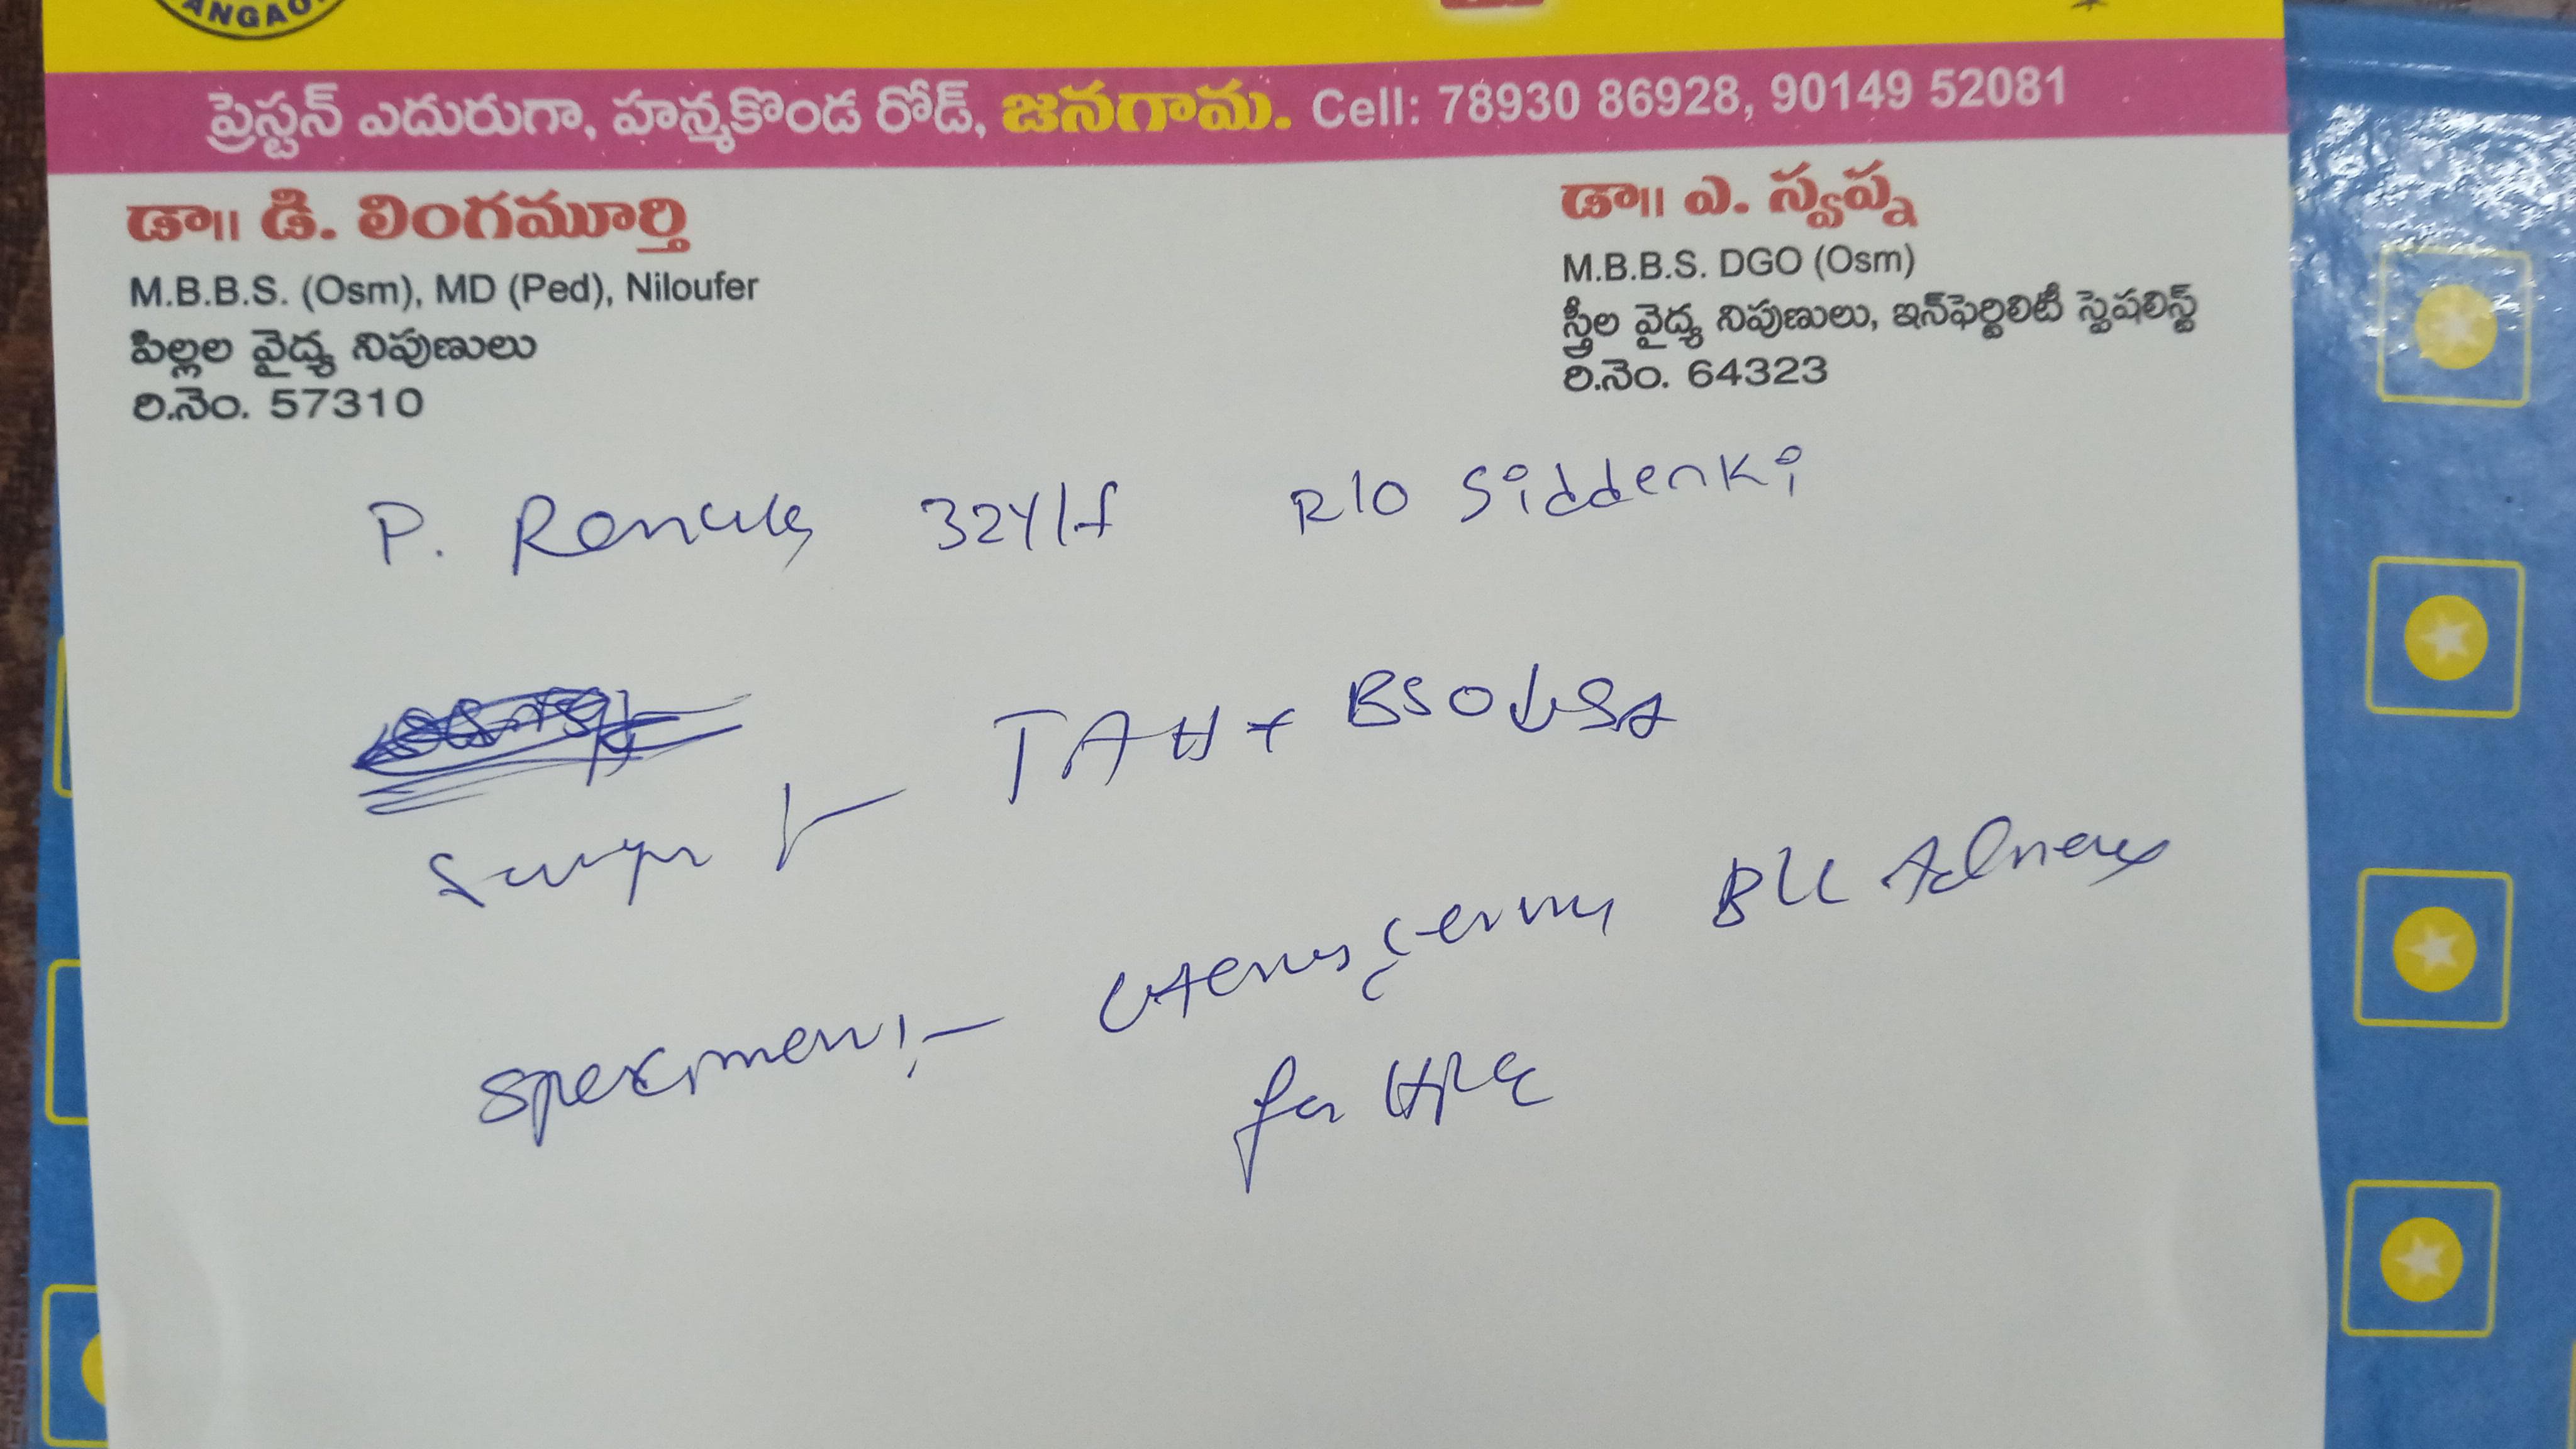 ANGAO
ప్రెస్టన్ ఎదురుగా, హన్మకొండ రోడ్, జనగామ. Cell: 78930 86928, 90149 52081
డా|| డి. లింగమూర్తి
M.B.B.S. (Osm), MD (Ped), Niloufer
పిల్లల వైద్య నిపుణులు
రి.నెం. 57310
డా|| ఎ. స్వప్న
M.B.B.S. DGO (Osm)
స్త్రీల వైద్య నిపుణులు, ఇన్‌ఫెర్టిలిటీ స్పెషలిస్ట్
రి.నెం. 64323
P. 32Y/f R/O Siddenki
TAH + BSO
specimen :- uterus, cervix B/L Adnexa
for HPE